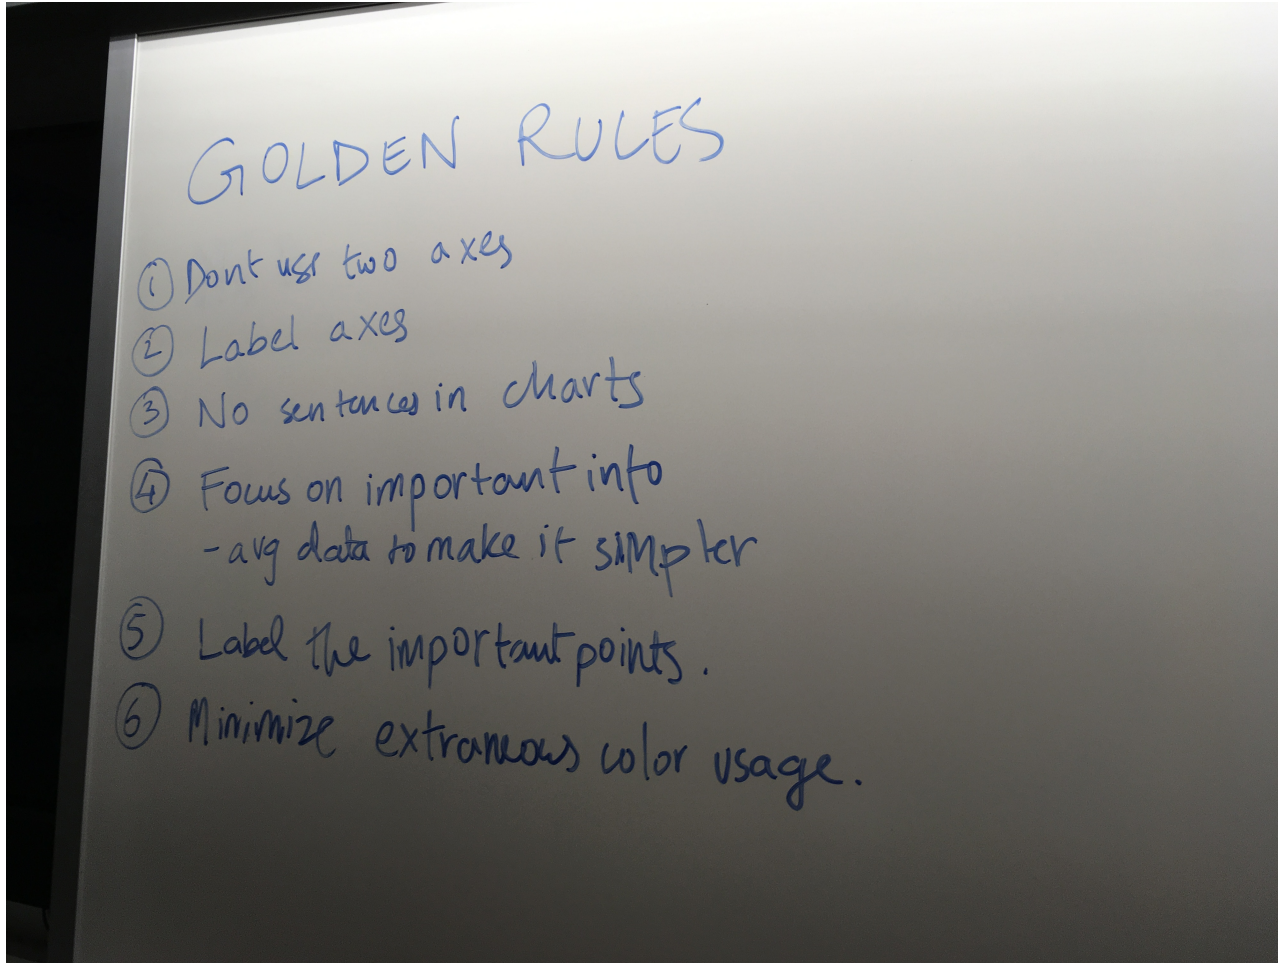 GOLDEN RULES
① Dont use two axes
② Label axes
③ No sentences in charts
④ Focus on important info
- avg data to make it simpler
⑤ Label the important points.
⑥ Minimize extraneous color usage.